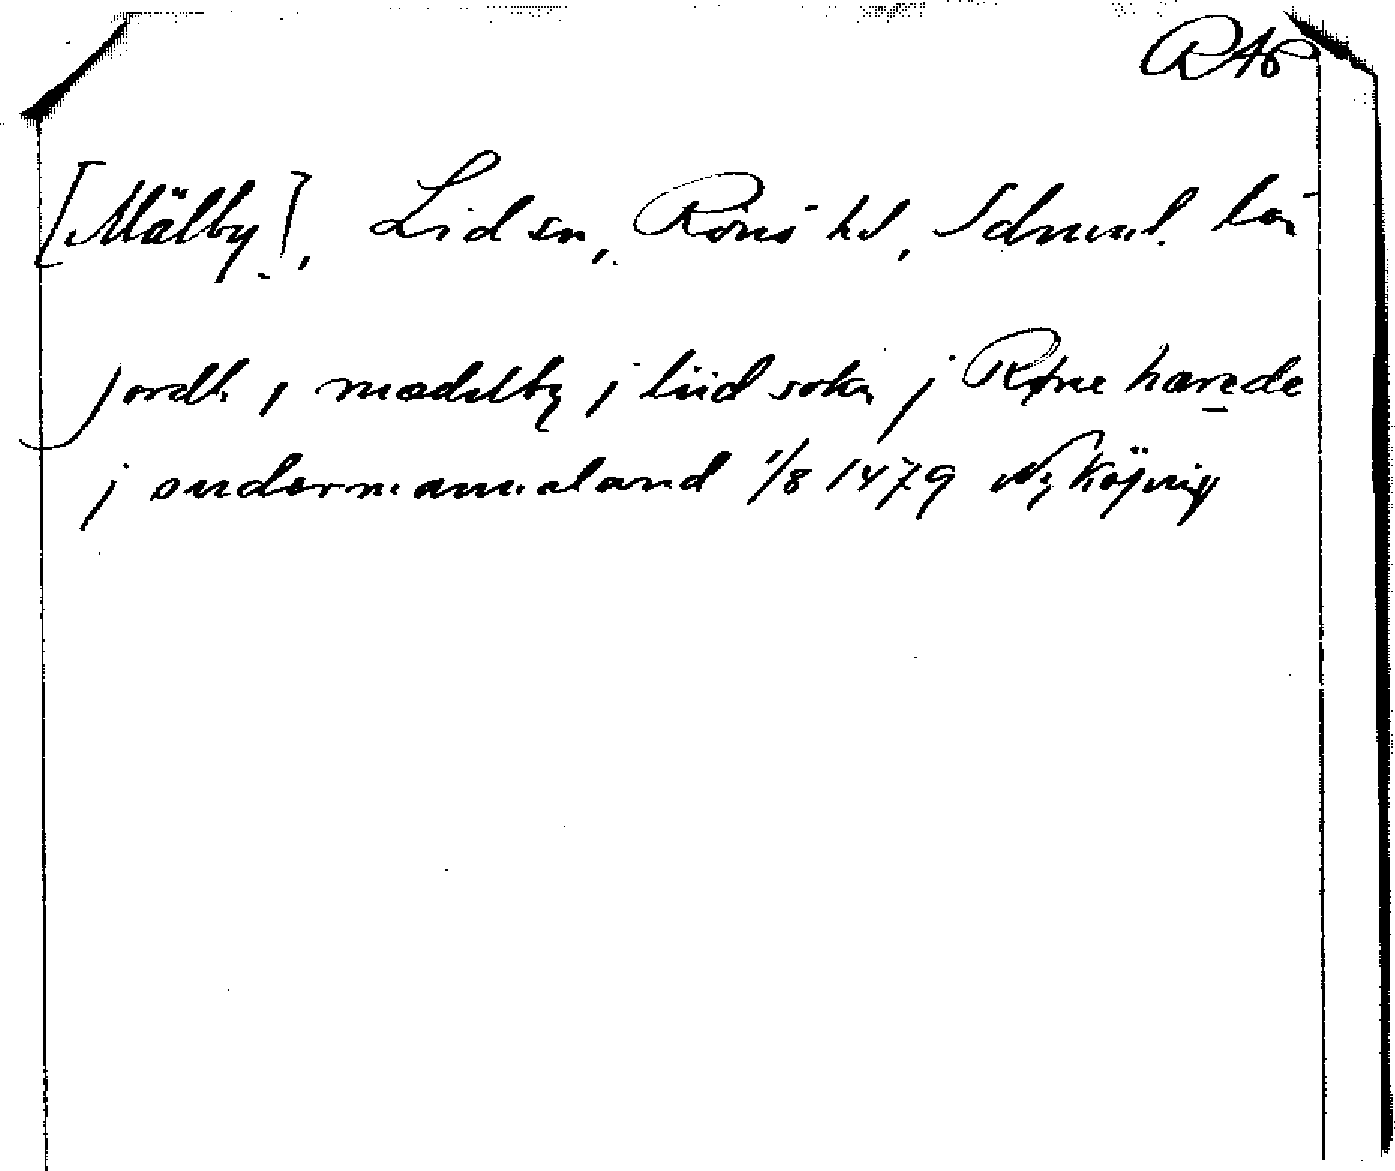 RAp
[Mälby], Lids sn, Rönö hd, Sdmnl. län
jordh j mædelby j liid sokn j Røne hærede
j sudermannaland 1/8 1479 Nyköping